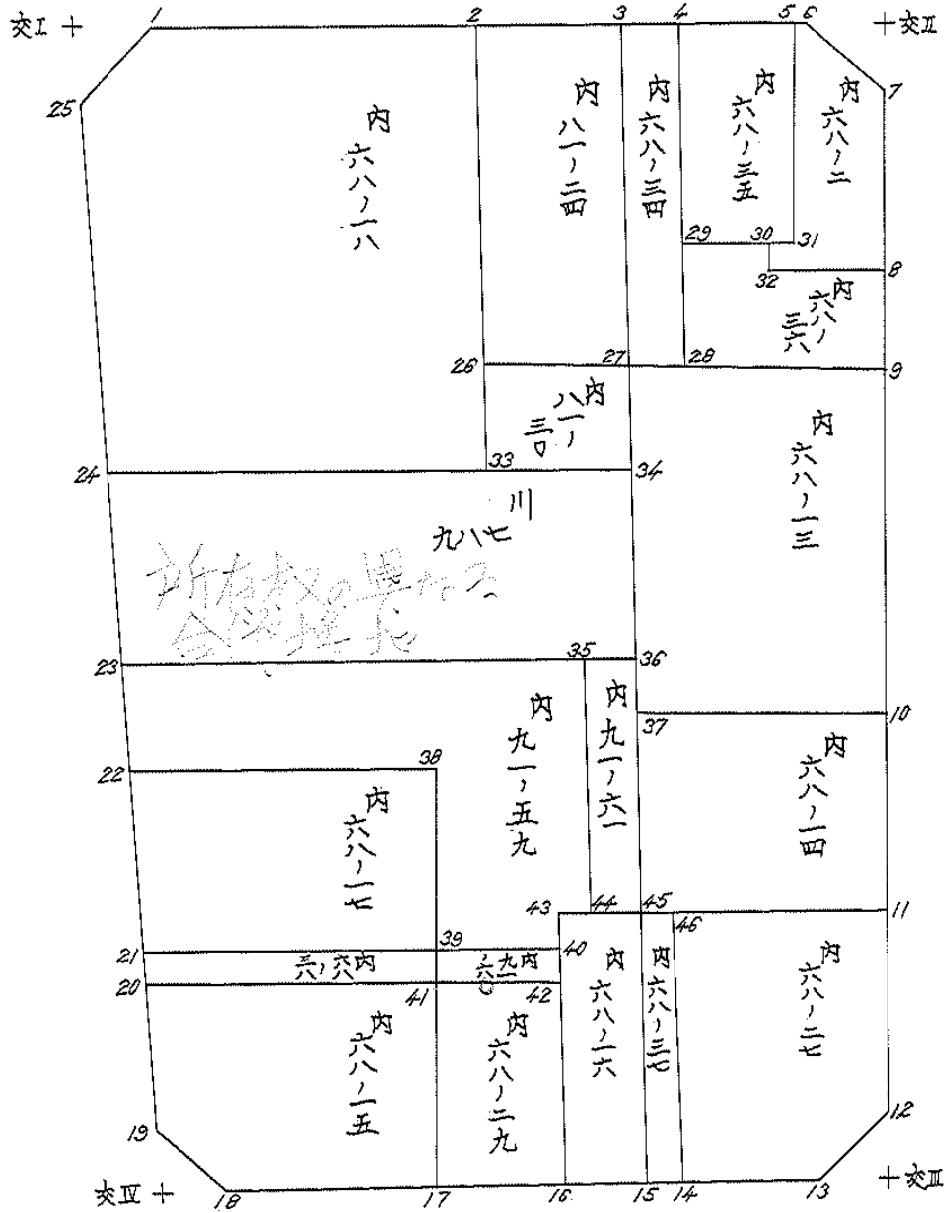 交I + 1 2 3 4 5 6 + 交II
25 7
内 六八ノ一八
内 八一ノ二四
内 六八ノ三四
内 六八ノ三五
内 六八ノ二
29 30 31
32 8
内 六八ノ三六
26 27 28 9
内 八一ノ三〇
内 六八ノ一三
24 33 34
川 九八七
所有者の異なる
23 35 36
37 10
22 38
内 九一ノ五九
内 九一ノ六一
内 六八ノ一四
内 六八ノ一七
43 44 45 46 11
21 39 40
内 六八ノ三八
内 九一ノ六〇
20 41 42
内 六八ノ一五
内 六八ノ二九
内 六八ノ一六
内 六八ノ三七
内 六八ノ二七
19 12
交IV + 18 17 16 15 14 13 + 交III